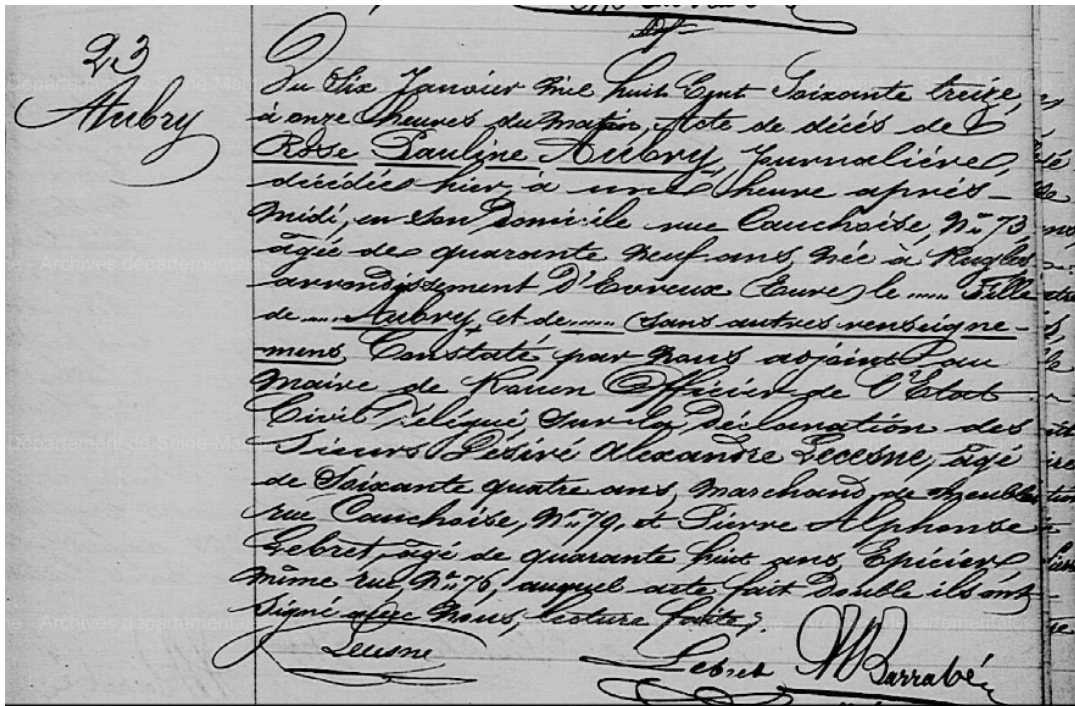 23
Aubry
Du Dix Janvier mil huit Cent Soixante treize,
à onze heures du matin, Acte de décès de
Rose Pauline Aubry, Journalière,
décédée hier, à une heure après-
midi, en son Domicile rue Cauchoise, N° 73,
âgée de quarante neuf ans, née à Rugles
arrondissement D'Evreux (Eure) le ..... Fille
de ..... Aubry, et de ..... (sans autres renseigne-
mens, Constaté par nous adjoint au
Maire de Rouen Officier de l'Etat
Civil Délégué, sur la Déclaration des
Sieurs Désiré Alexandre Lecesne, âgé
de Soixante quatre ans, marchand de meubles
rue Cauchoise, N° 79, et Pierre Alphonse
Lebret, âgé de quarante huit ans, Epicier
même rue, N° 76, auquel acte fait Double ils ont
signé avec nous, lecture faite;
Lecesne
Lebret
Barrabé